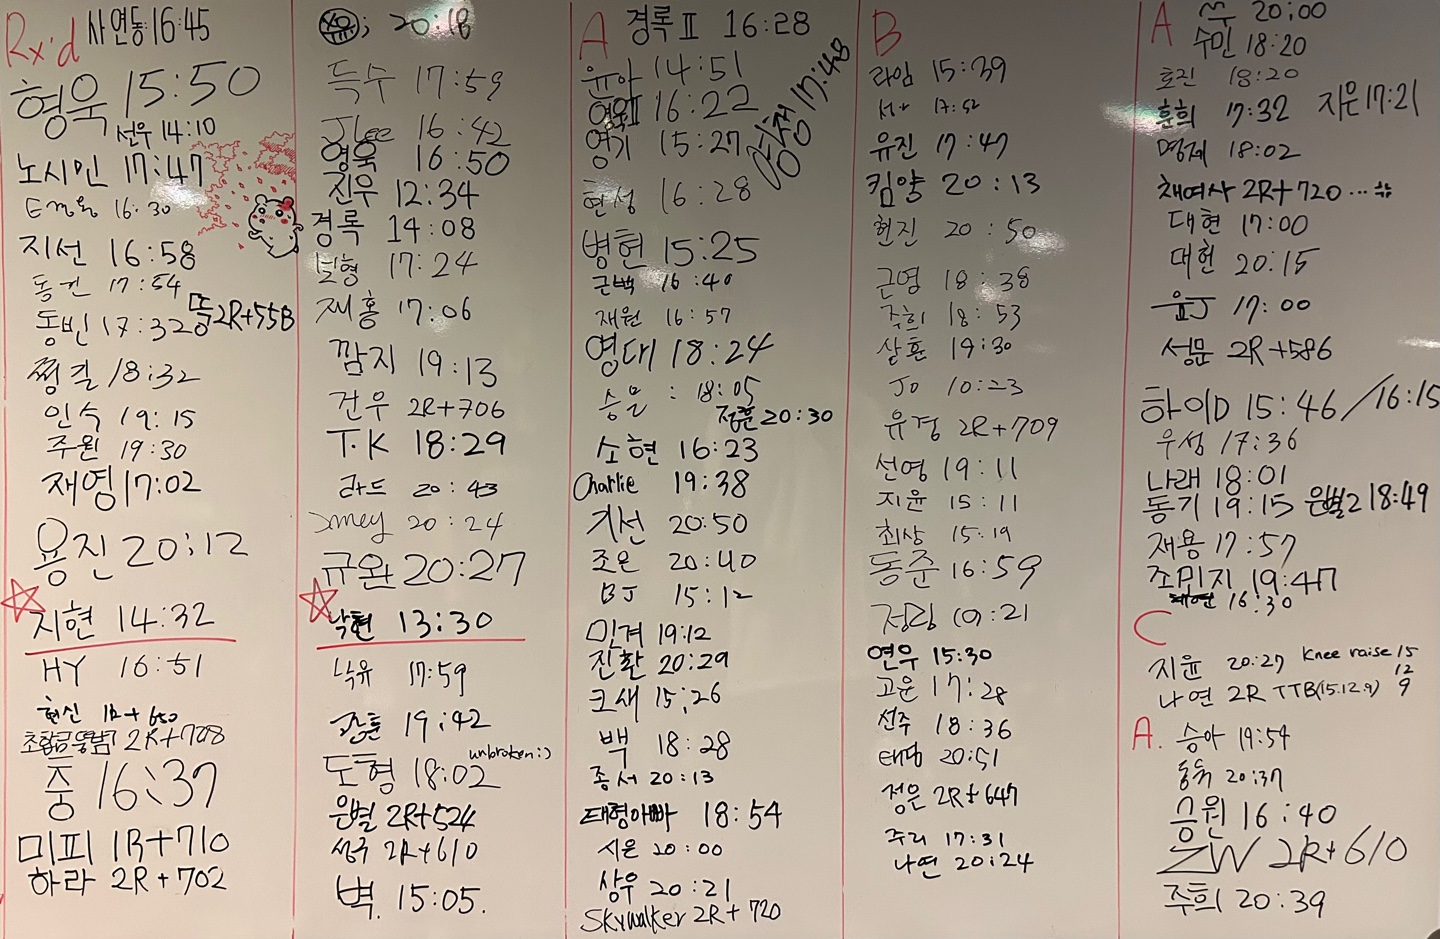 Rx'd
사연동 16:45
형욱 15:50
선우 14:10
노시민 17:47
16:30
지선 16:58
동건 17:54
동빈 17:32
뜸 2R+55B
찡길 18:32
인숙 19:15
주원 19:30
재영 17:02
용진 20:12
지현 14:32
HY 16:51
현신 1R+650
2R+708
중 16:37
미피 1R+710
하라 2R+702
20:18
득수 17:59
JLee 16:42
영욱 16:50
진우 12:34
경록 14:08
보형 17:24
재홍 17:06
깜지 19:13
건우 2R+706
T.K 18:29
라드 20:43
20:24
규완 20:27
낙현 13:30
낙유 17:59
19:42
도형 18:02 unbroken:)
은별 2R+524
성주 2R+610
벽. 15:05.
A
경록Ⅱ 16:28
윤아 14:51
16:22
영기 15:27
17:48
현성 16:28
병헌 15:25
근백 16:40
재원 16:57
영대 18:24
승은 : 18:05
정훈 20:30
소현 16:23
Charlie 19:38
기선 20:50
조은 20:40
BJ 15:12
민겨 19:12
진환 20:29
크새 15;26
백 18:28
종서 20:13
태형아빠 18:54
시은 20:00
상우 20:21
Skywalker 2R+720
B
라임 15:39
17:52
유진 17:47
킴양 20:13
현진 20:50
근영 18:38
주희 18:53
상훈 19:30
JO 10:23
유경 2R+709
선영 19:11
지윤 15:11
최상 15:19
동준 16:59
정랑 19:21
연우 15:30
고운 17:28
선주 18:36
태경 20:51
정은 2R+647
주리 17:31
나연 20:24
A
20:00
수민 18:20
효진 18:20
훈희 17:32
지은 17:21
명제 18:02
채여사 2R+720 ...
대현 17:00
대헌 20:15
윤J 17:00
성문 2R+586
하이D 15:46 / 16:15
우성 17:36
나래 18:01
동기 19:15
은별2 18:49
재용 17:57
조민지 19:47
태연 16:30
C
지윤 20:27 Knee raise 15
12
9
나연 2R TTB(15.12.9)
A.
승아 19:54
동욱 20:37
승원 16:40
ZW 2R+610
주희 20:39